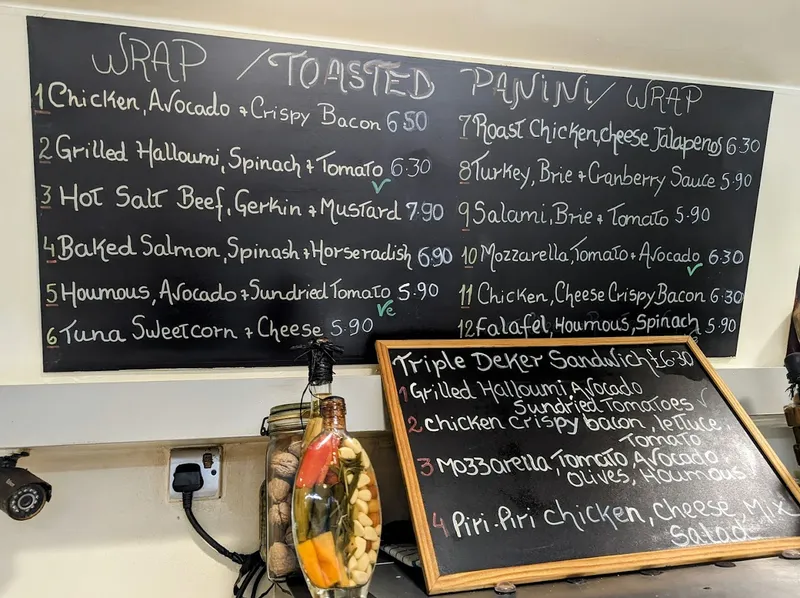 WRAP / TOASTED PANINI / WRAP
1 Chicken, Avocado + Crispy Bacon 6.50
2 Grilled Halloumi, Spinach + Tomato 6.30
✓
3 Hot Salt Beef, Gerkin + Mustard 7.90
4 Baked Salmon, Spinash + Horseradish 6.90
5 Houmous, Avocado + Sundried Tomato 5.90
Ve
6 Tuna Sweetcorn + Cheese 5.90
7 Roast Chicken, cheese Jalapenos 6.30
8 Turkey, Brie + Cranberry Sauce 5.90
9 Salami, Brie + Tomato 5.90
10 Mozzarella, Tomato + Avocado 6.30
✓
11 Chicken, Cheese Crispy Bacon 6.30
12 Falafel, Houmous, Spinach 5.90
Triple Deker Sandwich £6.30
1 Grilled Halloumi Avocado
Sundried Tomatoes ✓
2 chicken crispy bacon, lettuce
Tomato
3 Mozzarella, Tomato, Avocado,
olives, Houmous
4 Piri-Piri chicken, cheese, Mix
Salad